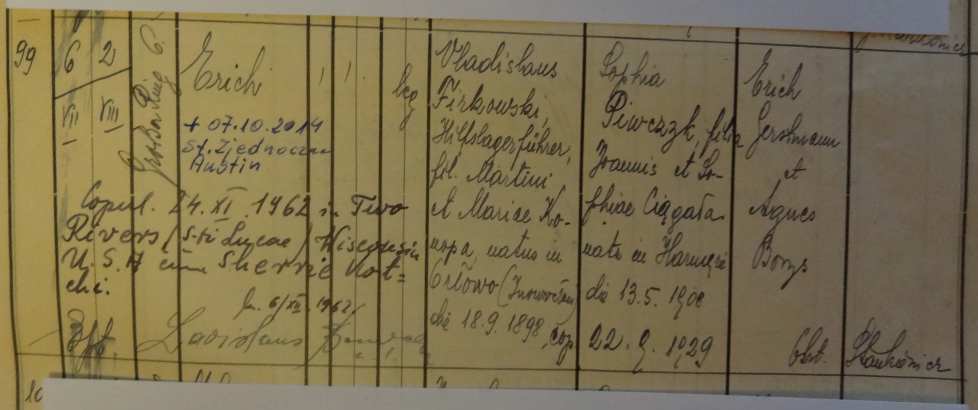 99
6
VII
2
VIII
6
Erich
leg
+ 07.10.2014
St. Zjednoczone
Austin
Copul. 24. XI. 1962 in Two
Rivers / S-ti Lucae / Wisconsin
U.S.A cum Sherrie
chi.
6/XII. 1962/
Ladislaus
Vladislaus
Firkowski,
Hilfslagerführer,
fil. Martini
et Mariae Ko-
nopa, natus in
Orłowo
die 18.9.1898, cop
Sophia
Piwczyk, filia
Joannis et So-
phiae Ciągała
nata in Harmęże
die 13.5.1908
22. 9. 1929
Erich
Gerstmann
et
Agnes
Borys